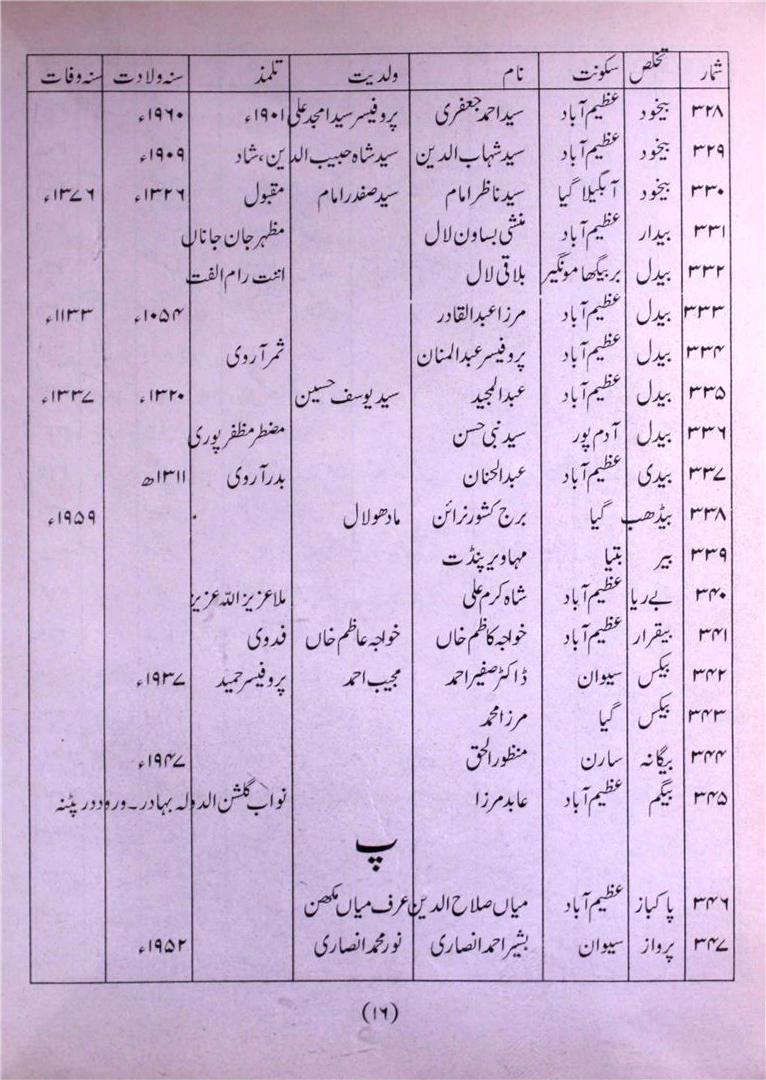 شمار تخلص سکونت نام ولدیت تلمذ سنہ ولادت سنہ وفات
۳۲۸ بیخود عظیم آباد سید احمد جعفری پروفیسر سید امجد علی ۱۹۰۱ء ۱۹۶۰ء
۳۲۹ بیخود عظیم آباد سید شہاب الدین سید شاہ حبیب الدین، شاد ۱۹۰۹ء
۳۳۰ بیخود آبگیلا گیا سید ناظر امام سید صفدر امام مقبول ۱۳۲۶ء ۱۳۷۶ء
۳۳۱ بیدار عظیم آباد منشی بساون لال مظہر جان جاناں
۳۳۲ بیدل بربگھا مونگیر بلاقی لال اننت رام الفت
۳۳۳ بیدل عظیم آباد مرزا عبدالقادر ۱۰۵۴ء ۱۱۳۳ء
۳۳۴ بیدل عظیم آباد پروفیسر عبدالمنان ثمر آروی
۳۳۵ بیدل عظیم آباد عبدالمجید سید یوسف حسین ۱۳۲۰ء ۱۳۳۷ء
۳۳۶ بیدل آدم پور سید نبی حسن مضطر مظفر پوری
۳۳۷ بیدی عظیم آباد عبدالحنان بدر آروی ۱۳۱۱ھ
۳۳۸ بیڈھب گیا برج کشور نرائن مادھو لال ۱۹۵۹ء
۳۳۹ بیر بتیا مہاویر پنڈت
۳۴۰ بے ریا عظیم آباد شاہ کرم علی ملا عزیز اللہ عزیز
۳۴۱ بیقرار عظیم آباد خواجہ کاظم خاں خواجہ عاظم خاں فدوی
۳۴۲ بیکس سیوان ڈاکٹر صغیر احمد مجیب احمد پروفیسر حمید ۱۹۳۷ء
۳۴۳ بیکس گیا مرزا محمد
۳۴۴ بیگانہ سارن منظور الحق ۱۹۴۷ء
۳۴۵ بیگم عظیم آباد عابد مرزا نواب گلشن الدولہ بہادر۔ ورود در پٹنہ
پ
۳۴۶ پاکباز عظیم آباد میاں صلاح الدین عرف میاں مکھن
۳۴۷ پرواز سیوان بشیر احمد انصاری نور محمد انصاری ۱۹۵۲ء
(۱۶)